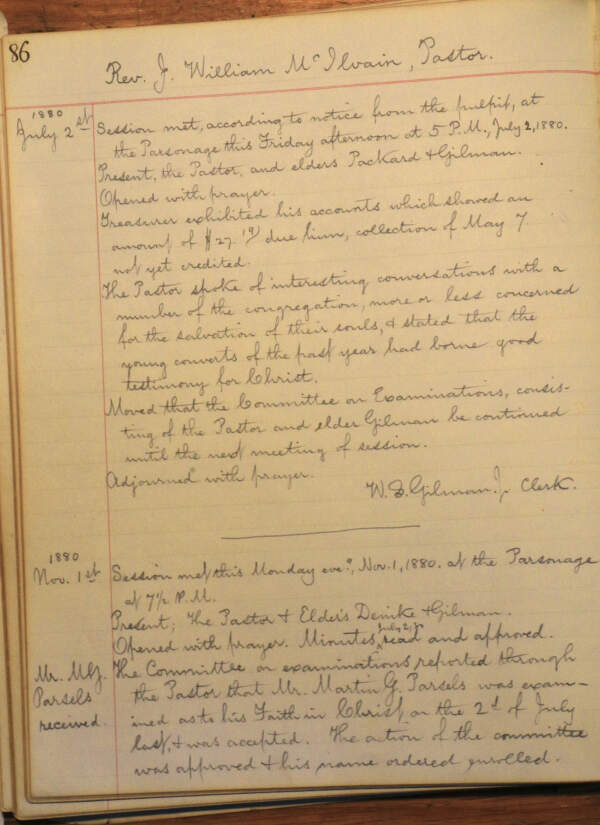 86
Rev. J. William McIlvain, Pastor.
1880
July 2st
Session met, according to notice from the pulpit, at
the Parsonage this Friday afternoon at 5 P.M., July 2, 1880.
Present, the Pastor, and elders Packard & Gilman.
Opened with prayer.
Treasurer exhibited his accounts which showed an
amount of $27.19 due him, collection of May 7
not yet credited.
The Pastor spoke of interesting conversations with a
number of the congregation, more or less concerned
for the salvation of their souls, & stated that the
young converts of the past year had borne good
testimony for Christ.
Moved that the Committee on Examinations, consis-
ting of the Pastor and elder Gilman be continued
until the next meeting of session.
Adjourned with prayer.
W. S. Gilman Jr. Clerk.
1880
Nov. 1st
Session met this Monday eve., Nov. 1, 1880. at the Parsonage
at 7½ P.M.
Present; The Pastor & Elders Denike & Gilman.
Opened with prayer. Minutes July 2, read and approved.
Mr. M.G.
Parsels
received.
The Committee on examinations reported through
the Pastor that Mr. Martin G. Parsels was exam-
ined as to his Faith in Christ on the 2d of July
last, & was accepted. The action of the committee
was approved & his name ordered enrolled.